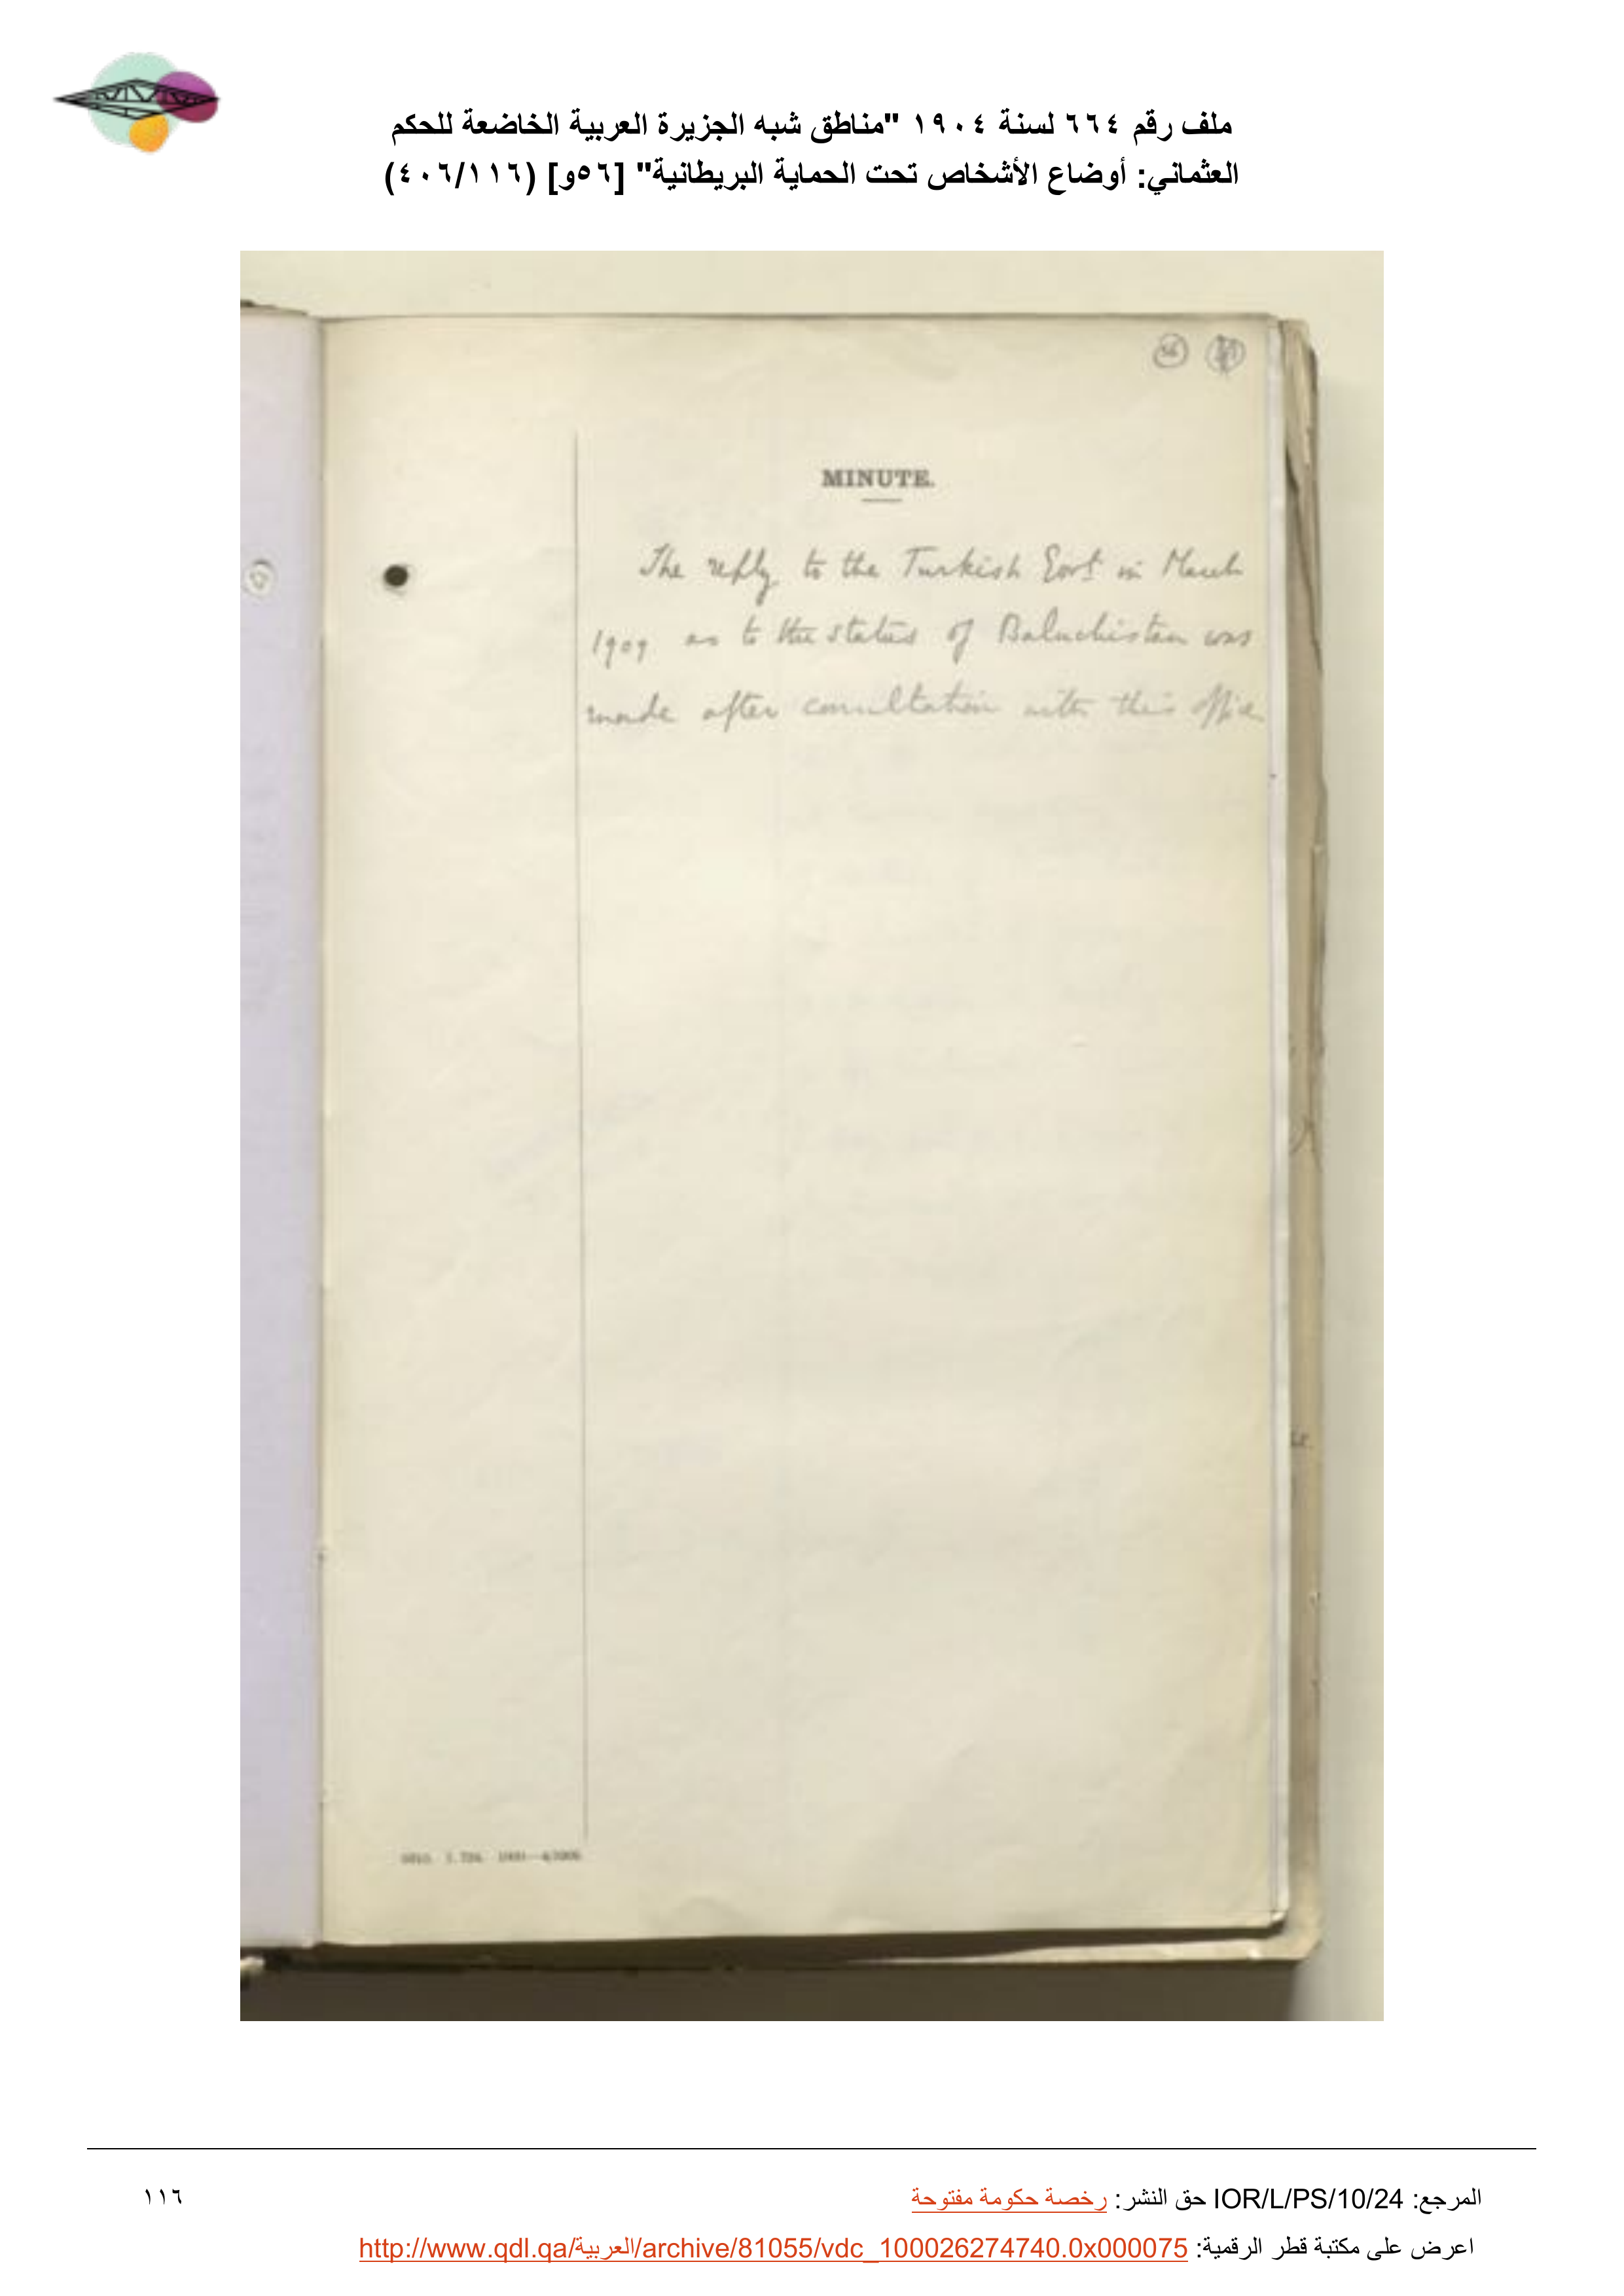 ملف رقم ٦٦٤ لسنة ١٩٠٤ "مناطق شبه الجزيرة العربية الخاضعة للحكم
العثماني: أوضاع الأشخاص تحت الحماية البريطانية" [٥٦و] (٤٠٦/١١٦)
56
MINUTE.
The reply to the Turkish Govt in March
1909 as to the status of Baluchistan was
made after consultation with this office
المرجع: IOR/L/PS/10/24 حق النشر: رخصة حكومة مفتوحة
١١٦
اعرض على مكتبة قطر الرقمية: http://www.qdl.qa/العربية/archive/81055/vdc_100026274740.0x000075